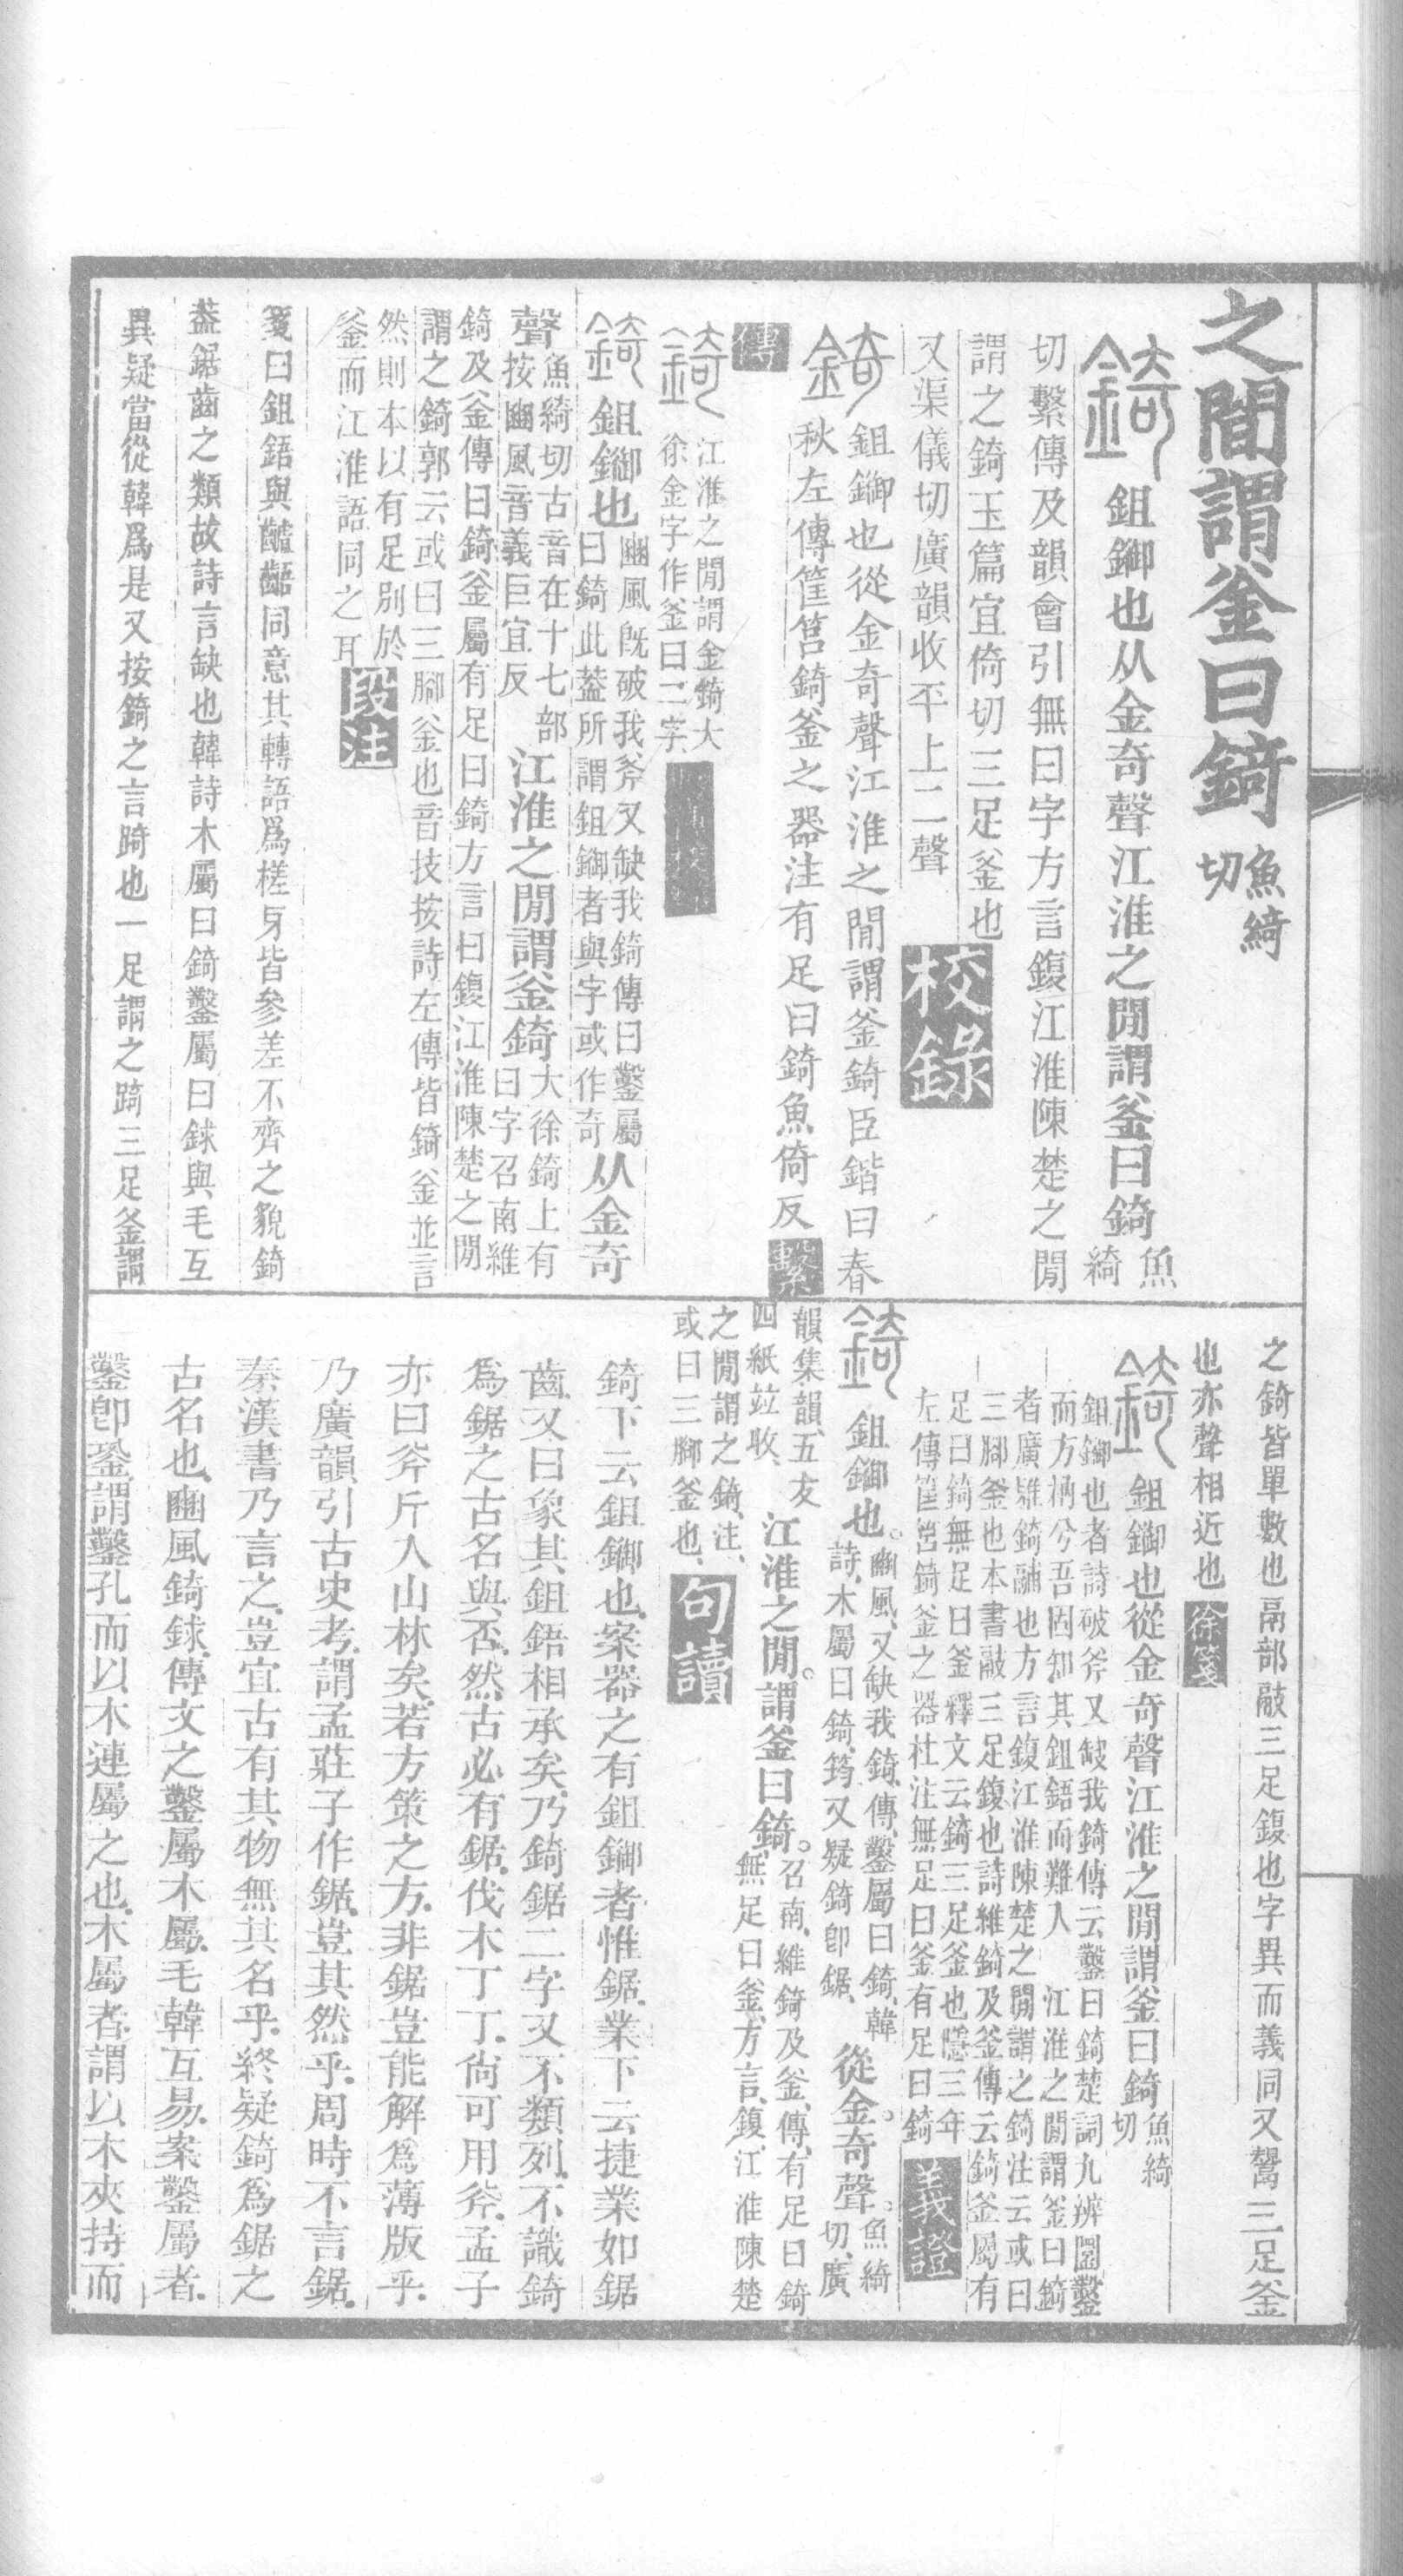 之間謂釜曰錡魚綺切
錡鉏䥏也从金奇聲江淮之閒謂釜曰錡魚綺
切繫傳及韻會引無曰字方言鍑江淮陳楚之閒
謂之錡玉篇宜倚切三足釜也
又渠儀切廣韻收平上二聲校錄
錡鉏䥏也從金奇聲江淮之閒謂釜錡臣鍇曰春
秋左傳筐筥錡釜之器注有足曰錡魚倚反繫
傳
錡江淮之閒謂金錡大
徐金字作釜曰二字
錡鉏䥏也豳風旣破我斧又缺我錡傳曰鑿屬
曰錡此蓋所謂鉏䥏者與字或作奇从金奇
聲魚綺切古音在十七部
按豳風音義巨宜反江淮之閒謂釜錡大徐錡上有
曰字召南維
錡及釜傳曰錡釜屬有足曰錡方言曰鍑江淮陳楚之閒
謂之錡郭云或曰三腳釜也音技按詩左傳皆錡釜並言
然則本以有足別於
釜而江淮語同之耳段注
箋曰鉏鋙與齟齬同意其轉語爲槎牙皆參差不齊之貌錡
蓋鋸齒之類故詩言缺也韓詩木屬曰錡鑿屬曰銶與毛互
異疑當從韓爲是又按錡之言踦也一足謂之踦三足釜謂
之錡皆單數也鬲部䰙三足鍑也字異而義同又鬹三足釜
也亦聲相近也徐箋
錡鉏䥏也從金奇聲江淮之閒謂釜曰錡魚綺
切
鉏䥏也者詩破斧又缺我錡傳云鑿曰錡楚詞九辨圜鑿
而方枘兮吾固知其鉏鋙而難入 江淮之閒謂釜曰錡
者廣雅錡鬴也方言鍑江淮陳楚之閒謂之錡注云或曰
三腳釜也本書䰙三足鍑也詩維錡及釜傳云錡釜屬有
足曰錡無足曰釜釋文云錡三足釜也隱三年
左傳筐筥錡釜之器杜注無足曰釜有足曰錡義證
錡鉏䥏也。豳風、又缺我錡、傳、鑿屬曰錡、韓
詩、木屬曰錡、筠又疑錡卽鋸、從金。奇聲。魚綺
切、廣
韻集韻、五支
四紙竝收、江淮之閒。謂釜曰錡。召南、維錡及釜、傳、有足曰錡
無足曰釜、方言、鍑、江淮陳楚
之閒謂之錡、注、
或曰三腳釜也、句讀
錡下云鉏䥏也、案器之有鉏䥏者惟鋸、業下云捷業如鋸
齒、又曰象其鉏鋙相承矣、乃錡鋸二字又不類列、不識錡
爲鋸之古名與否、然古必有鋸、伐木丁丁、尙可用斧、孟子
亦曰斧斤入山林矣、若方策之方、非鋸豈能解爲薄版乎、
乃廣韻引古史考、謂孟莊子作鋸、豈其然乎、周時不言鋸、
秦漢書乃言之、豈宜古有其物無其名乎、終疑錡爲鋸之
古名也、豳風錡銶、傳文之鑿屬木屬、毛韓互易、案鑿屬者、
鑿卽銎、謂鑿孔而以木連屬之也、木屬者、謂以木夾持而